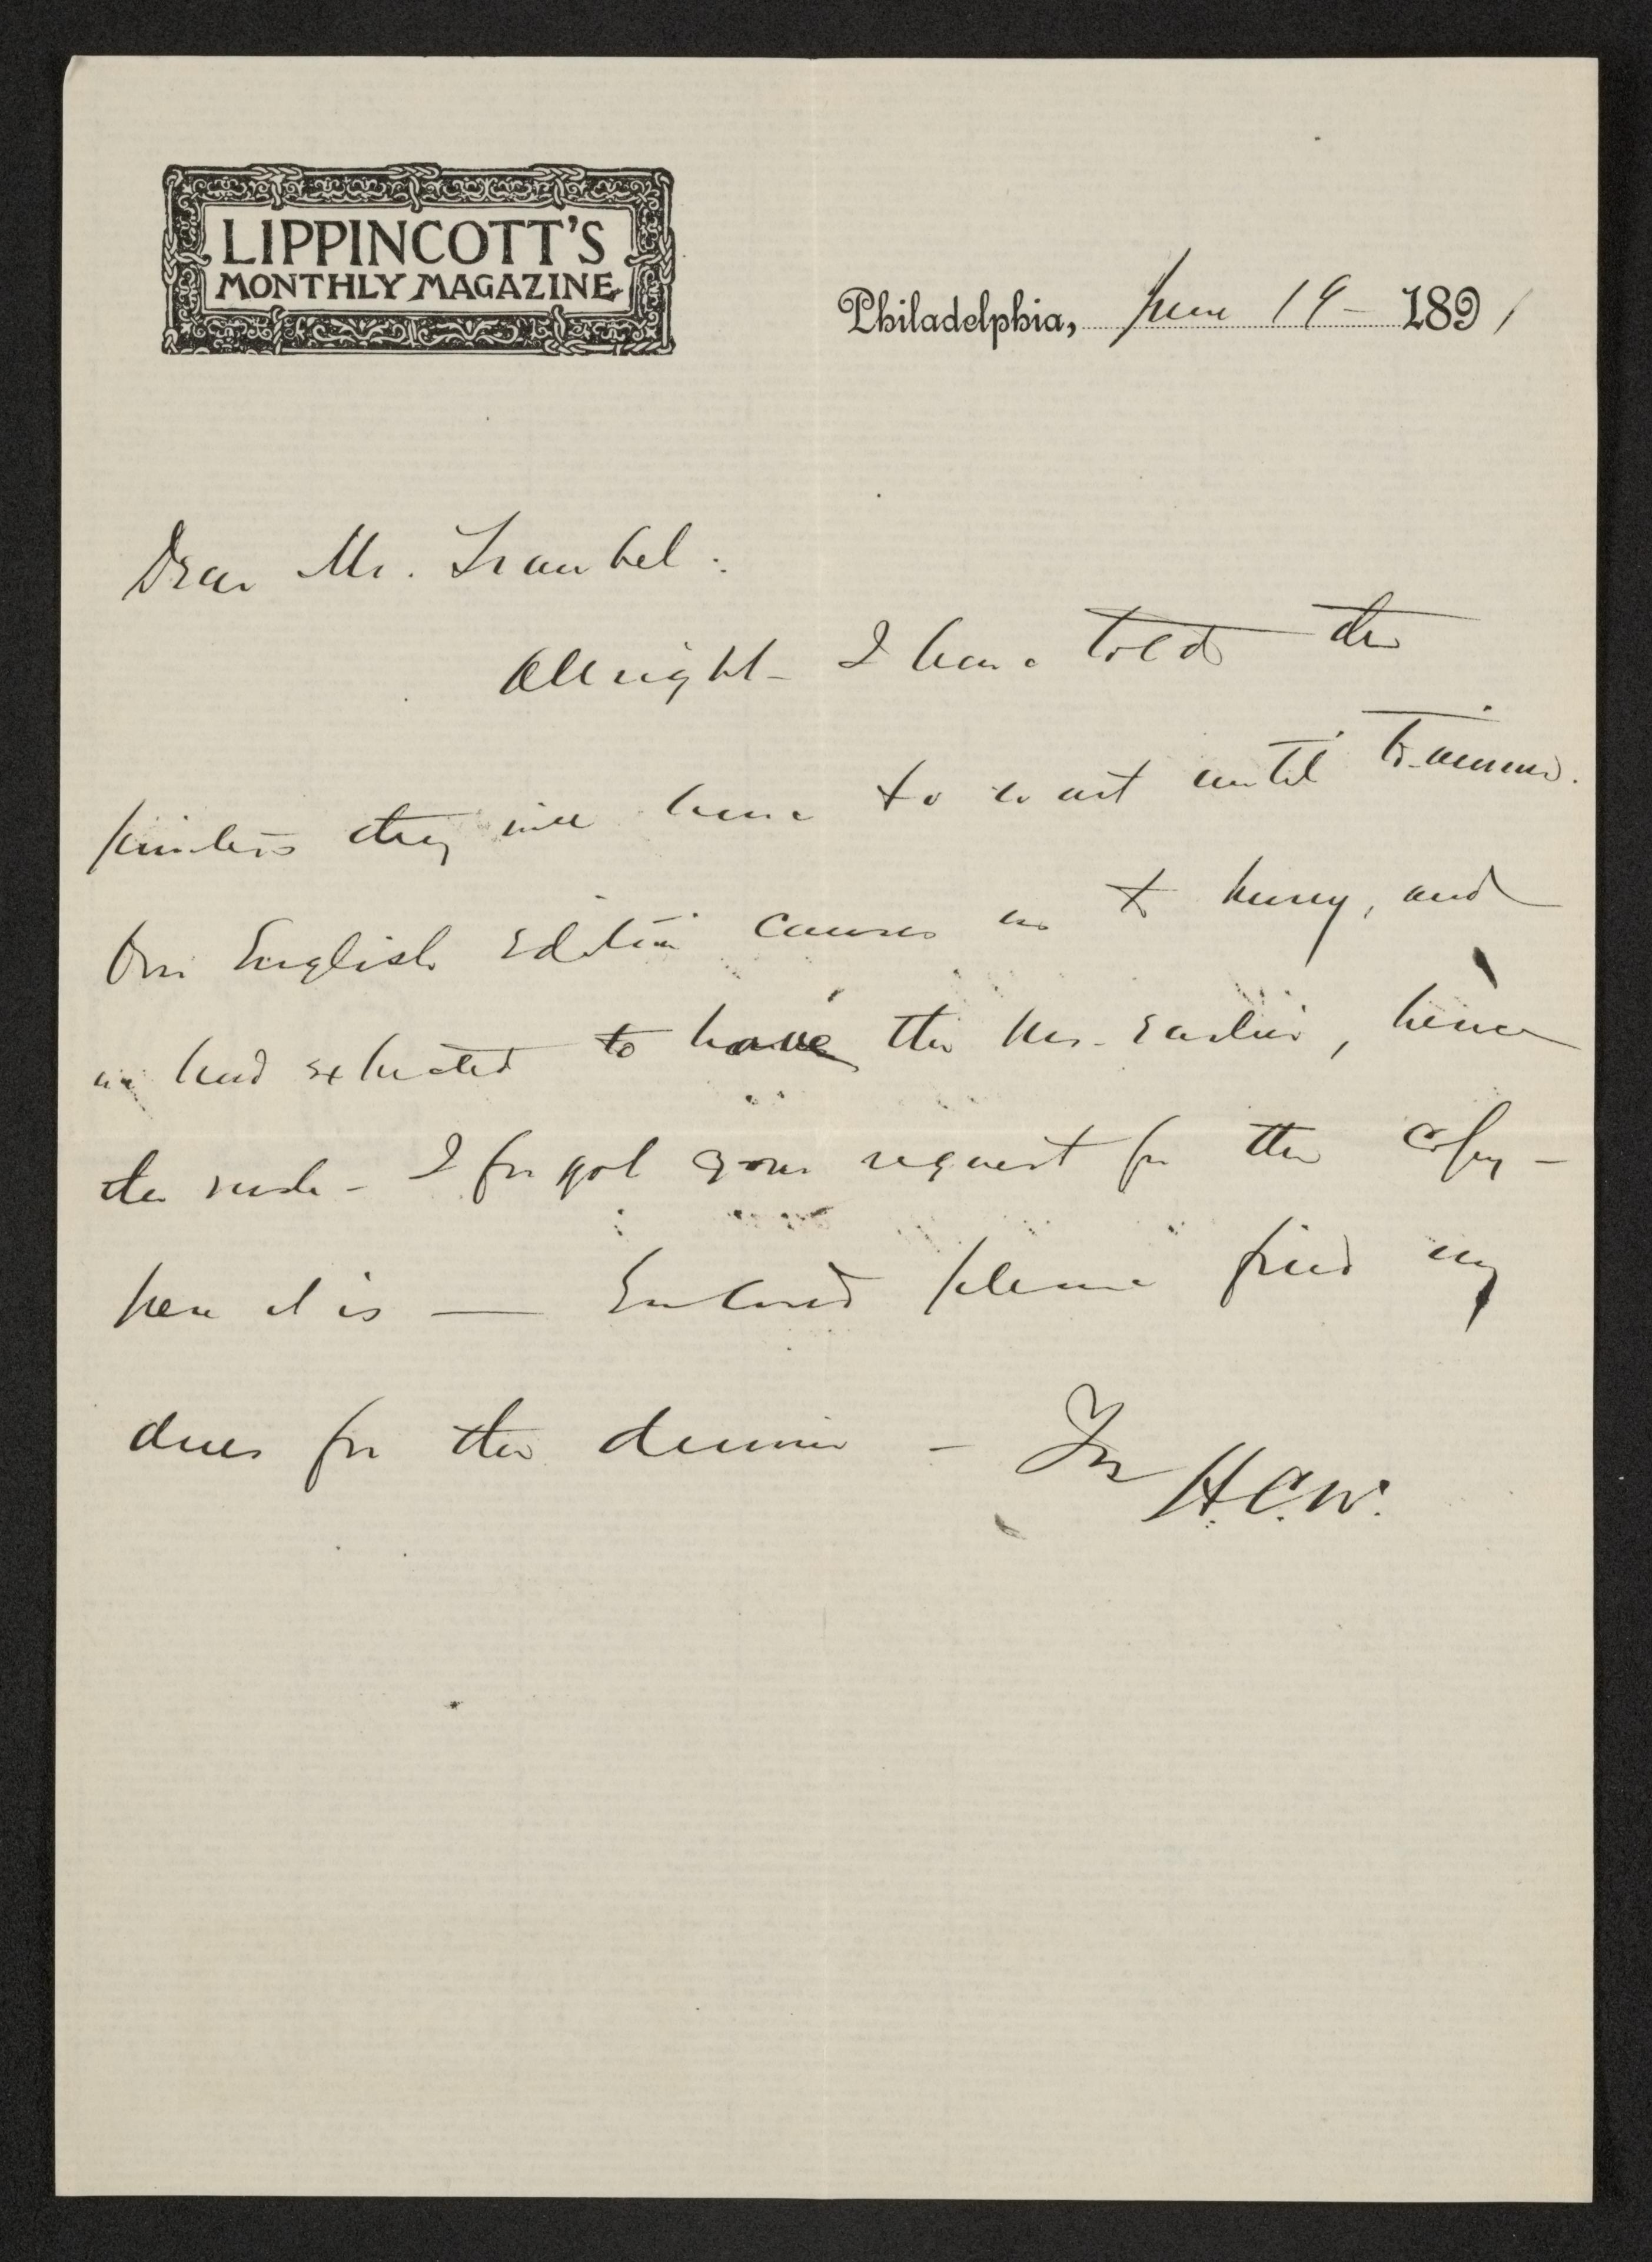 LIPPINCOTT'S
MONTHLY MAGAZINE
Philadelphia, June 19 - 1891
Dear Mr. Traubel:
All right - I have told the
printers they will have to wait until tomorrow.
Our English Edition causes us to hurry, and
we had expected to have the Ms. Earlier, hence
the rush - I forgot your request for the copy -
here it is — Enclosed please find my
dues for the dinner - Yrs
H.C.W.